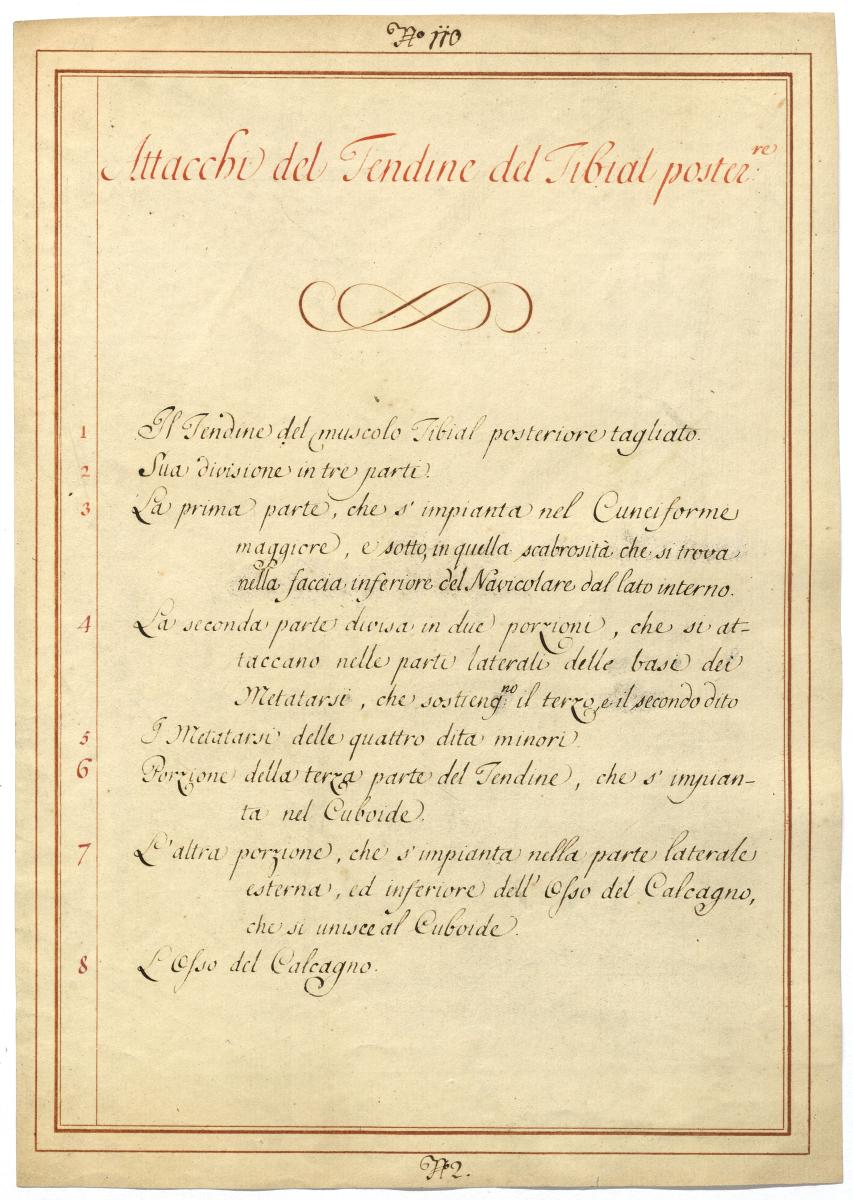 No 110
Attacchi del Tendine del Tibial poster:re
1 Il Tendine del muscolo Tibial posteriore tagliato.
2 Sua divisione in tre parti.
3 La prima parte, che s'impianta nel Cuneiforme
maggiore, e sotto, in quella scabrosità che si trova
nella faccia inferiore del Navicolare dal lato interno.
4 La seconda parte divisa in due porzioni, che si at-
taccano nelle parti laterali delle basi dei
Metatarsi, che sostieng:no il terzo, e il secondo dito
5 I Metatarsi delle quattro dita minori.
6 Porzione della terza parte del Tendine, che s'impian-
ta nel Cuboide.
7 L'altra porzione, che s'impianta nella parte laterale
esterna, ed inferiore dell'Osso del Calcagno,
che si unisce al Cuboide.
8 L'Osso del Calcagno.
No 2.